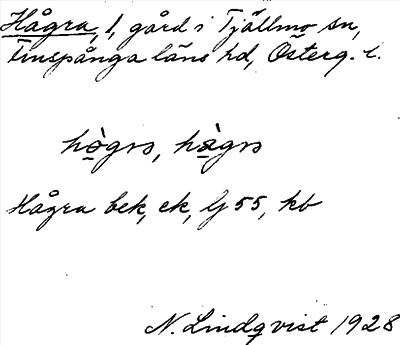 Hågra, 1, gård i Tjällmo sn,
Finspånga läns hd, Österg. l.
Hågra bek, ek, lj 55, kb
N. Lindqvist 1928